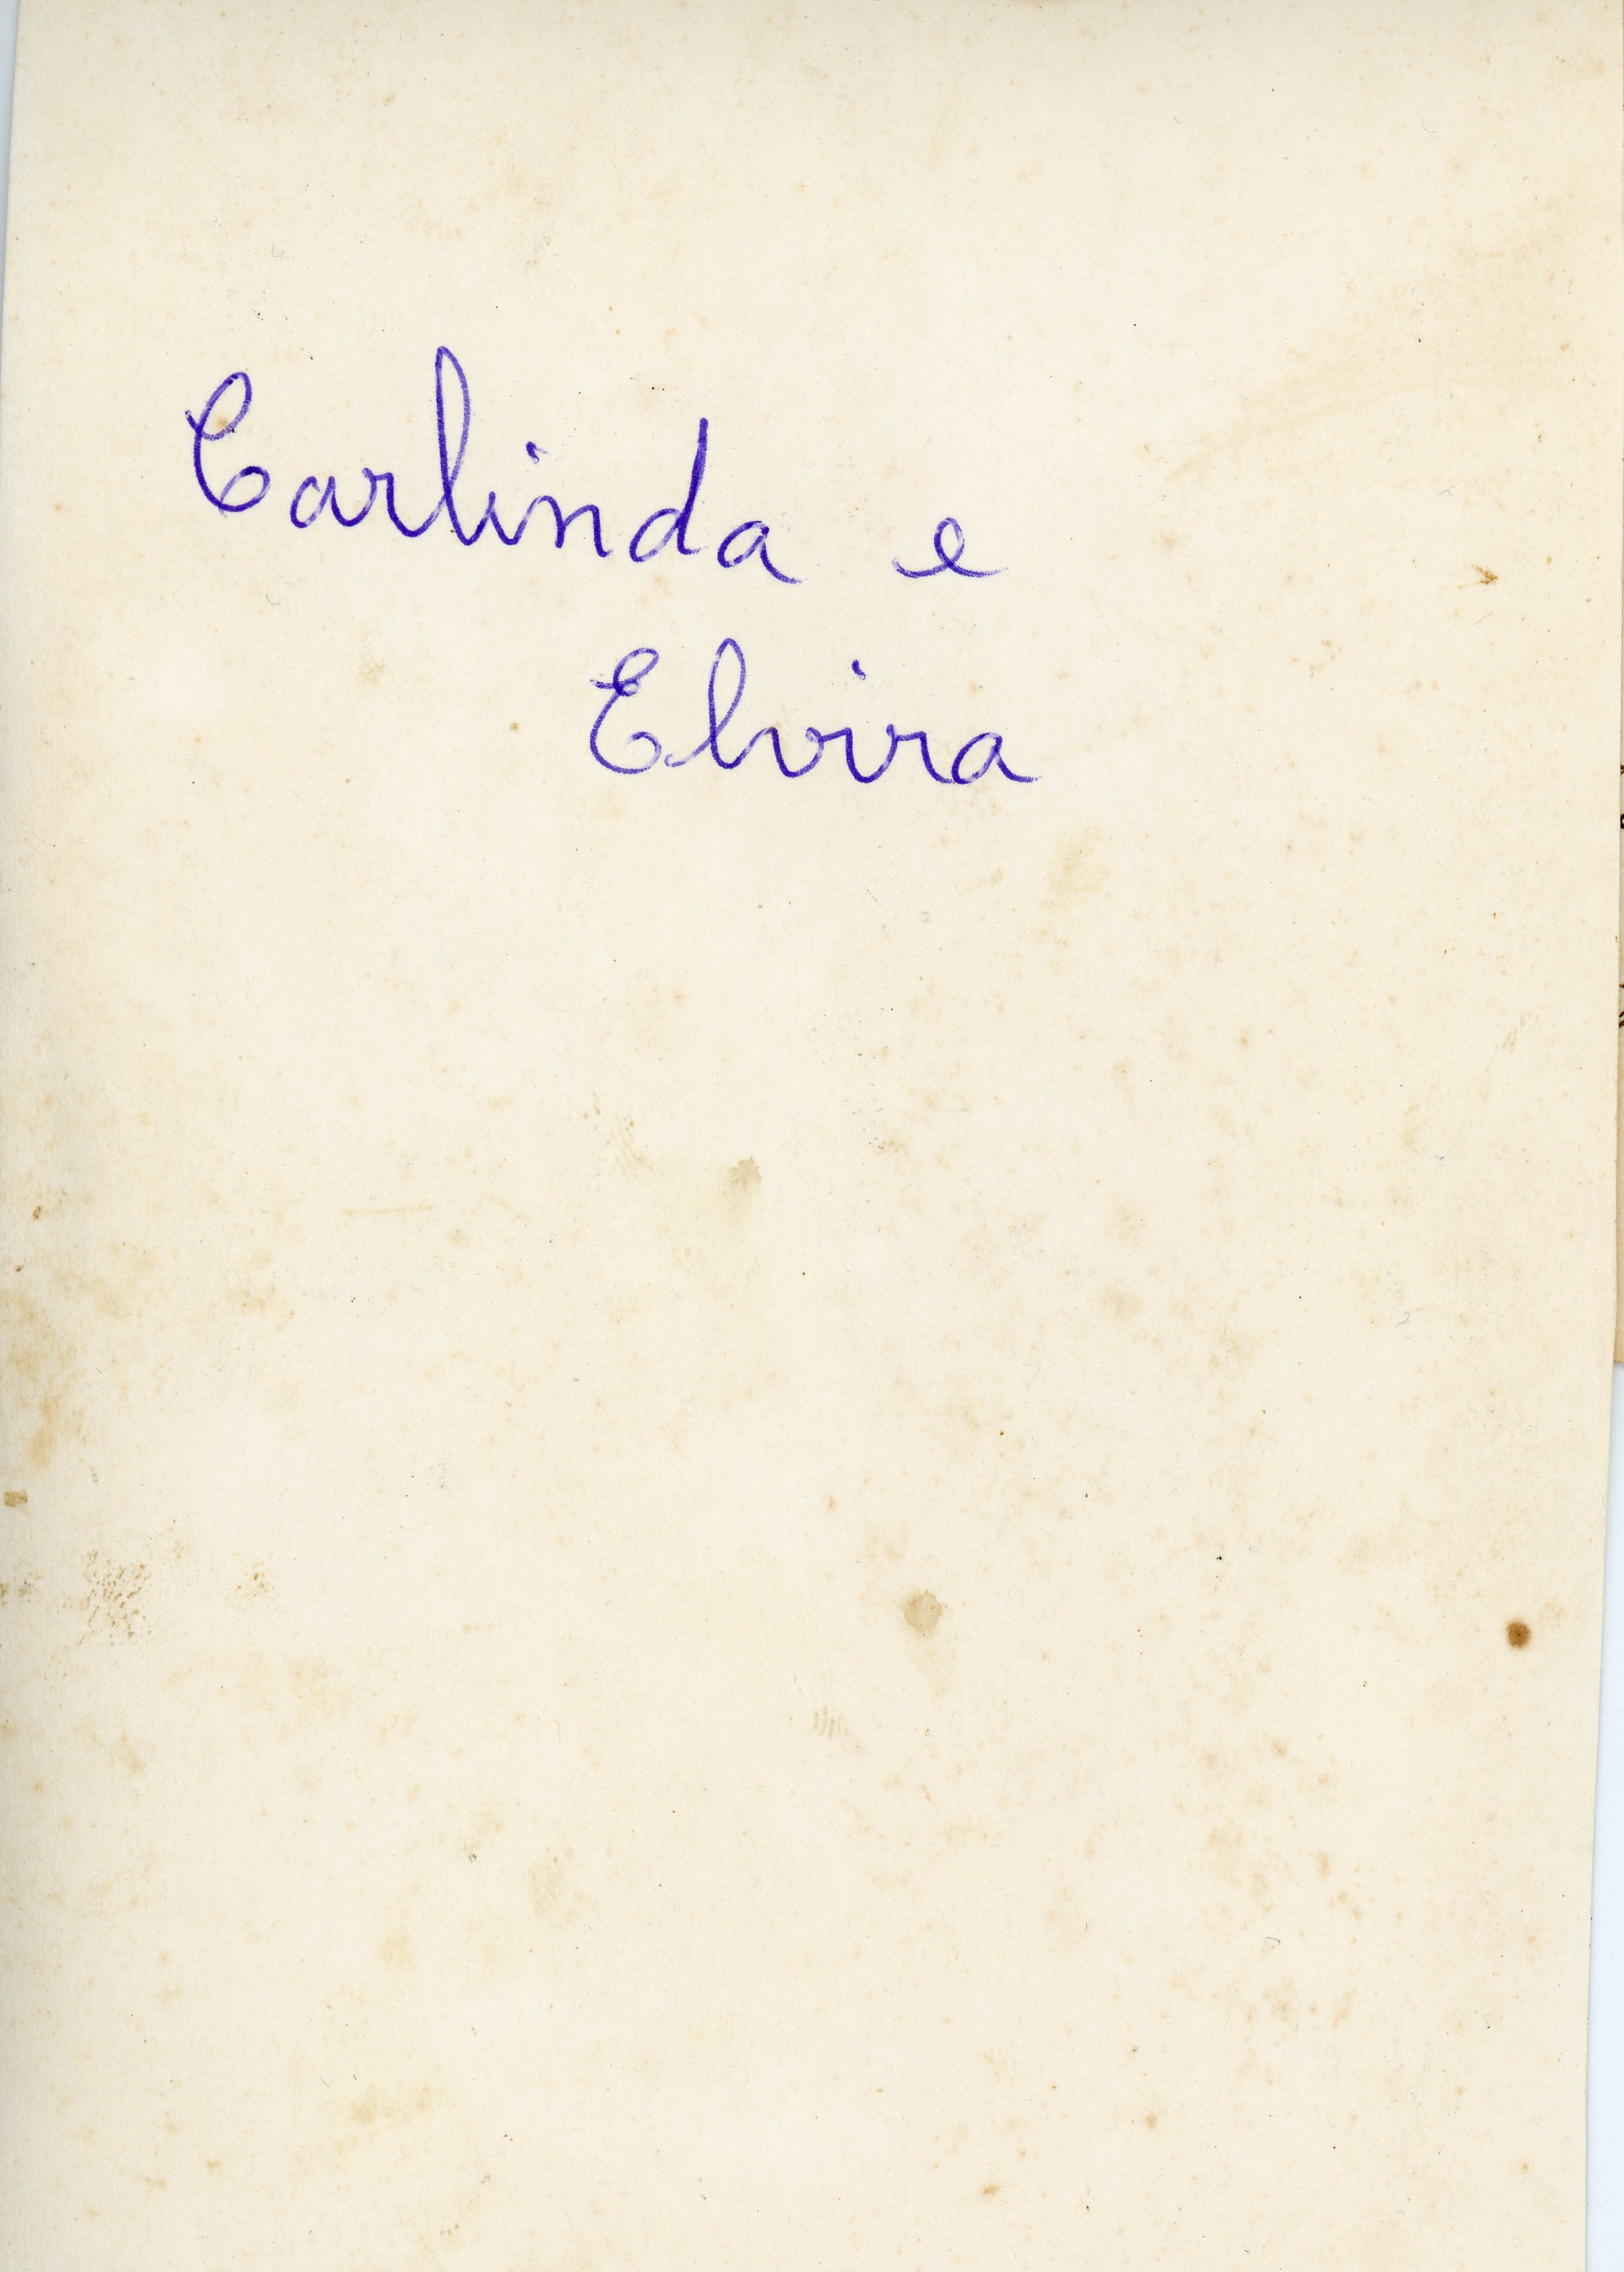 Carlinda e
Elvira